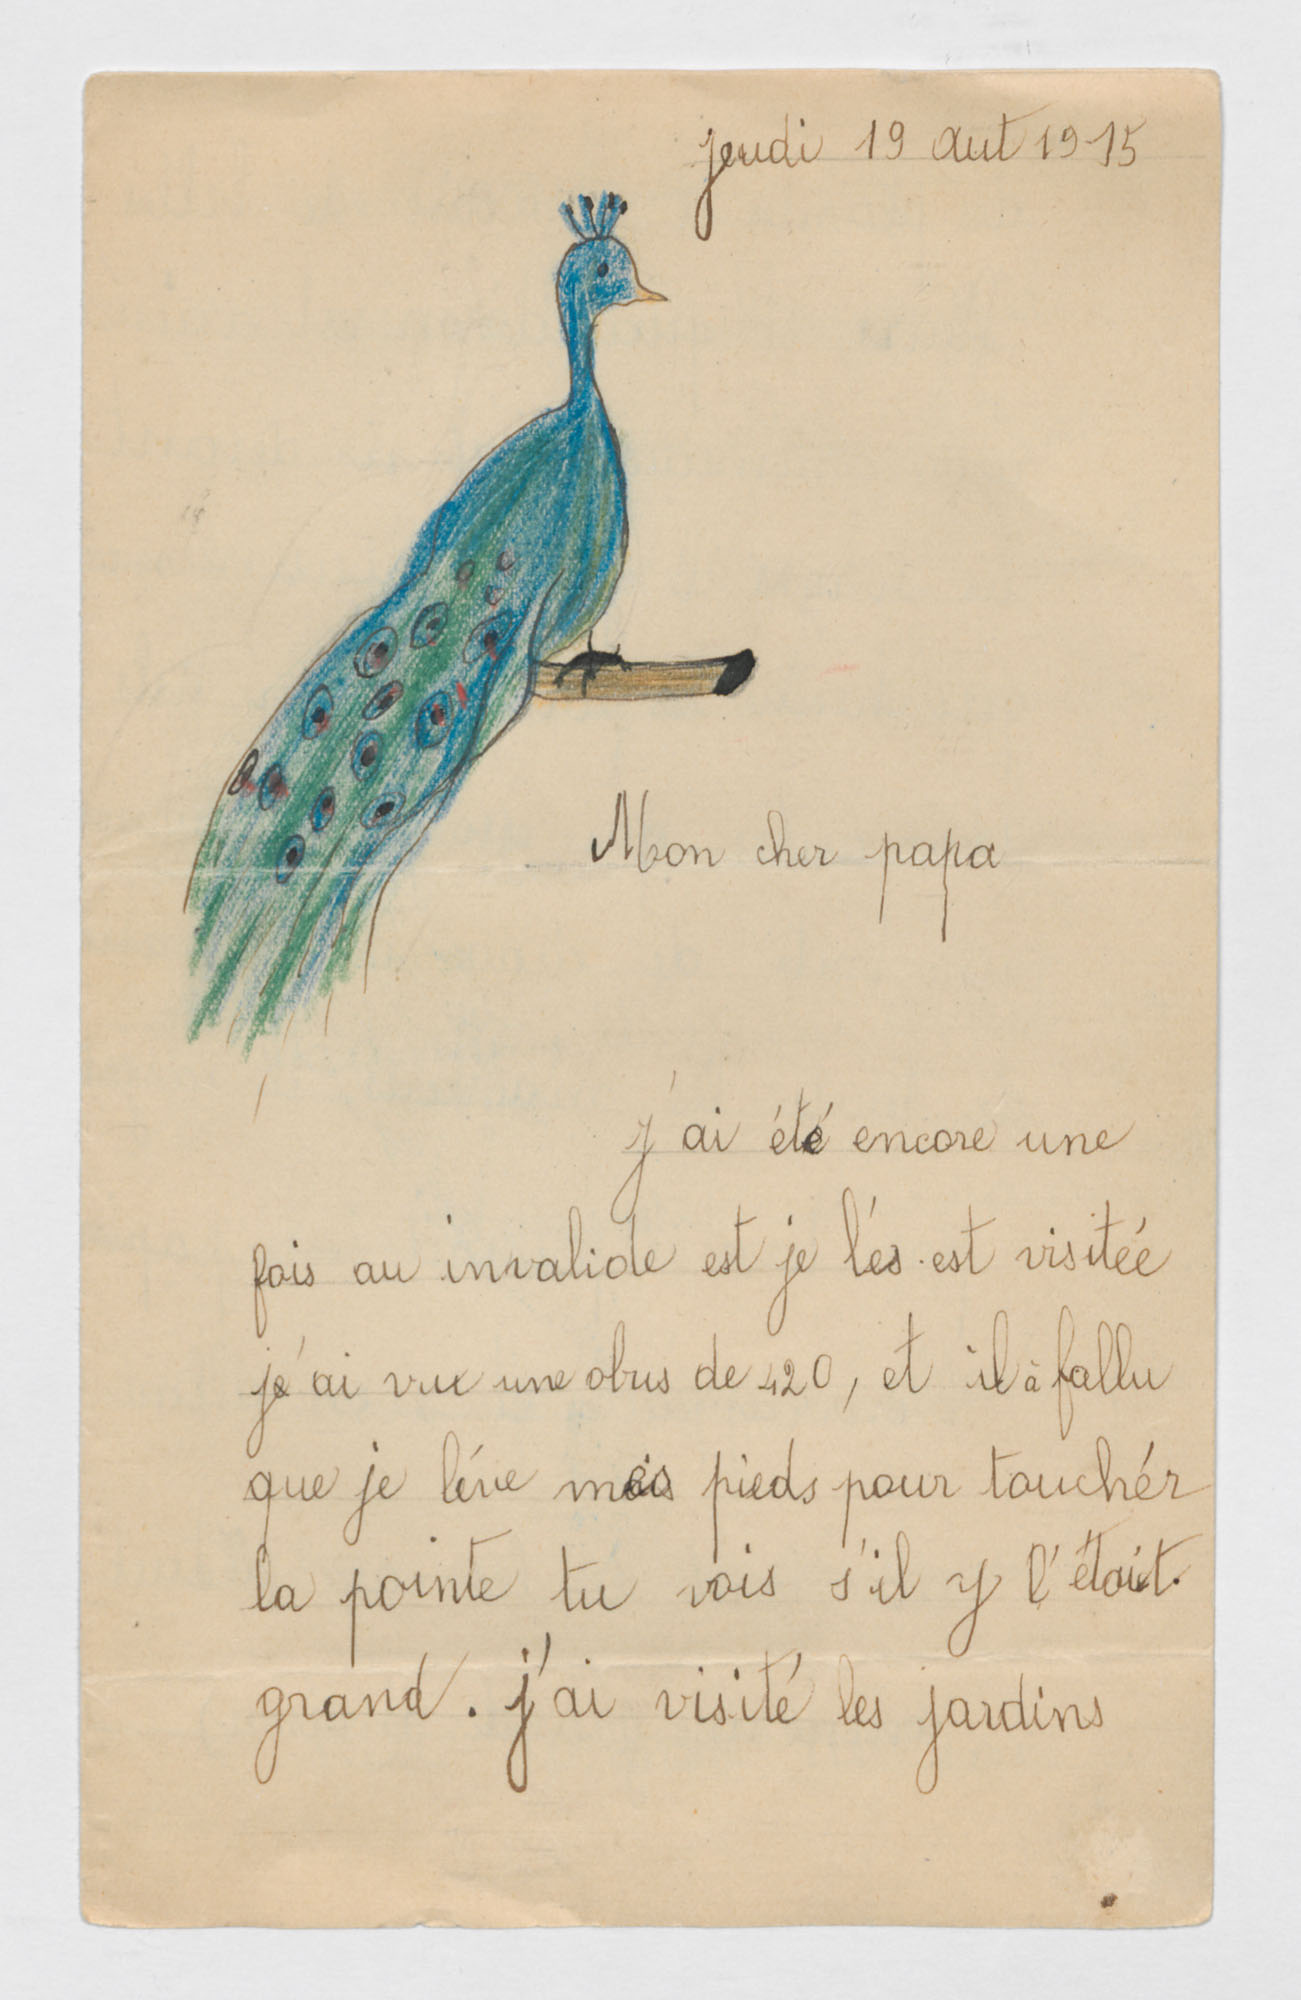 jeudi 19 aut 1915
Mon cher papa
j'ai été encore une
fois au invalide est je l'és est visitée
je'ai vue une obus de 420, et il à fallu
que je léve mes pieds pour touchér
la pointe tu vois s'il y l'étoit.
grand. j'ai visité les jardins